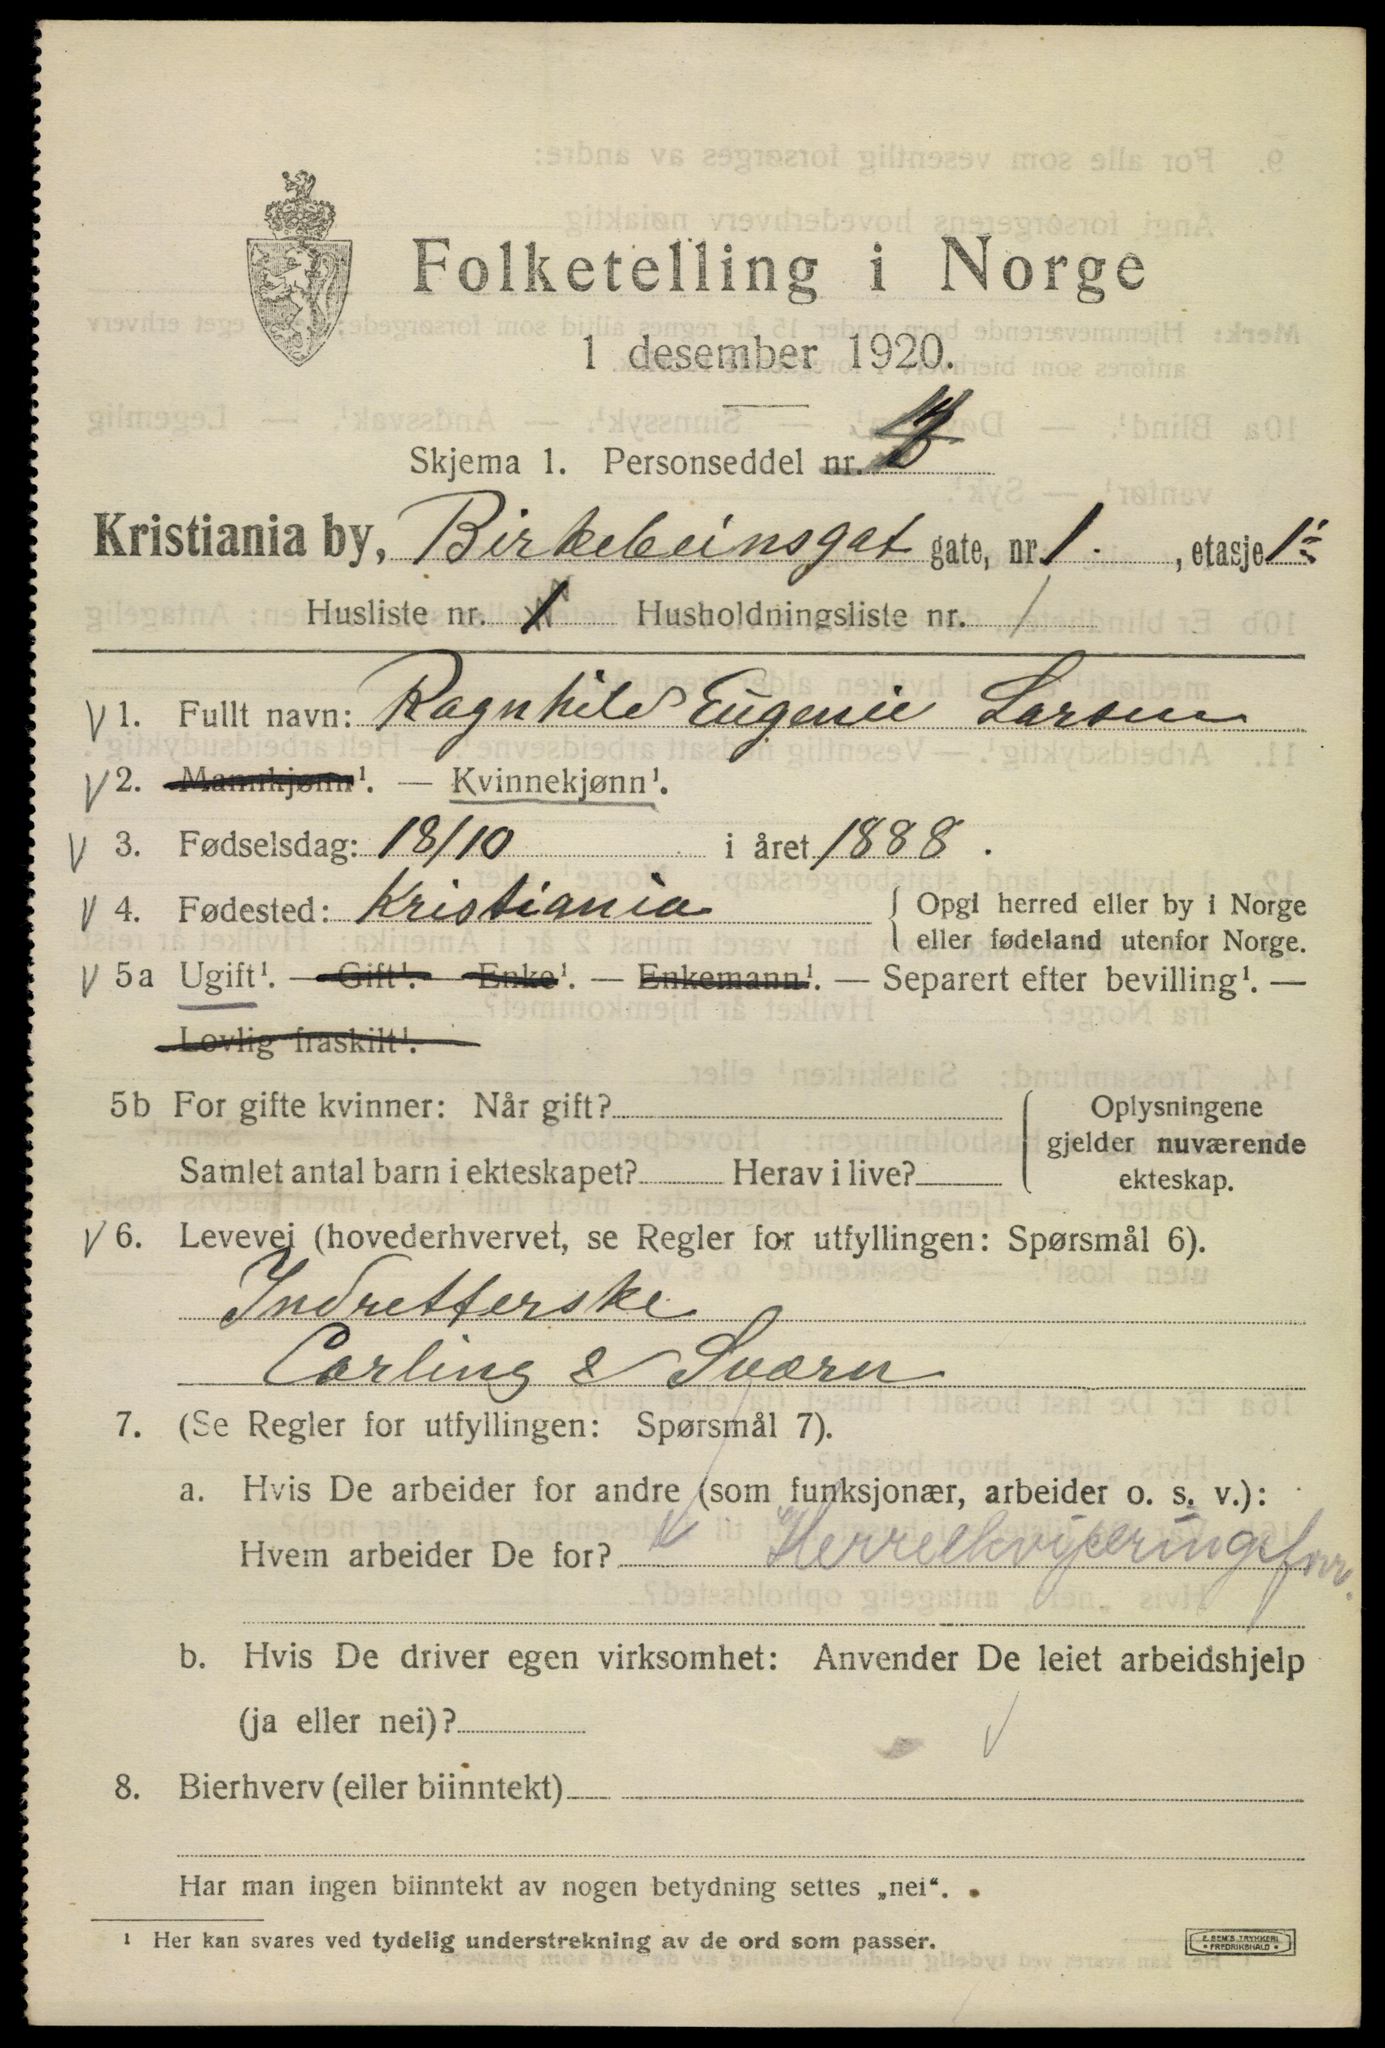 Folketelling i Norge
1 desember 1920.
Skjema 1. Personseddel nr.
Kristiania by, Birkebeinsgat gate, nr 1. , etasje 1
Husliste nr. 1 Husholdningsliste nr. 1
1. Fullt navn: Ragnhild Eugenie Larsen
2. Mannkjønn¹. — Kvinnekjønn¹.
3. Fødselsdag: 18/10 i året 1888.
4. Fødested: Kristiania { Opgi herred eller by i Norge
eller fødeland utenfor Norge.
5a Ugift¹. — Gift¹. — Enke¹. — Enkemann¹. — Separert efter bevilling¹. —
Lovlig fraskilt¹.
5b For gifte kvinner: Når gift? { Oplysningene
gjelder nuværende
Samlet antal barn i ekteskapet? Herav i live?
ekteskap.
6. Levevei (hovederhvervet, se Regler for utfyllingen: Spørsmål 6).
Indretterske
Carling & Sværn
7. (Se Regler for utfyllingen: Spørsmål 7).
a. Hvis De arbeider for andre (som funksjonær, arbeider o. s. v.):
Hvem arbeider De for? Herreekviperingsforr.
b. Hvis De driver egen virksomhet: Anvender De leiet arbeidshjelp
(ja eller nei)?
8. Bierhverv (eller biinntekt)
Har man ingen biinntekt av nogen betydning settes „nei“.
¹ Her kan svares ved tydelig understrekning av de ord som passer.
E. SEM'S TRYKKERI
• FREDRIKSHALD •